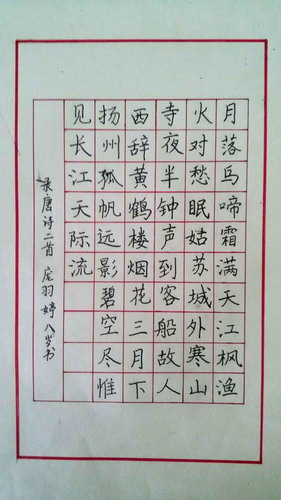 月落乌啼霜满天江枫渔
火对愁眠姑苏城外寒山
寺夜半钟声到客船故人
西辞黄鹤楼烟花三月下
扬州孤帆远影碧空尽惟
见长江天际流
录唐诗二首 庞羽婷八岁书